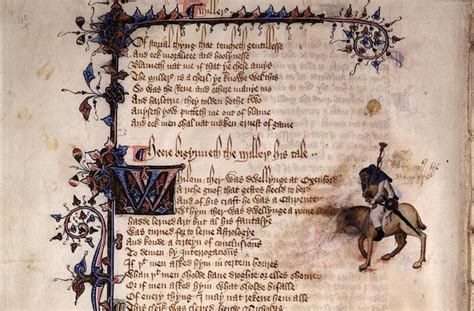 Of storial thyng that toucheth gentillesse
And eek moralitee and hoolynesse
Blameth nat me if that ye chese amys
The Millere is a cherl ye knowe wel this
So was the Reue and othere manye mo
And harlotrie they tolden bothe two
Auyseth yow putteth me out of blame
And eek men shal nat maken ernest of game
Heere bigynneth the Millere his tale
Whilom ther was dwellynge at Oxenford
A riche gnof that gestes heeld to bord
And of his craft he was a Carpenter
With hym ther was dwellynge a poure scoler
Hadde lerned art but al his fantasye
Was turned for to lerne Astrologye
And koude a certeyn of conclusions
To demen by Interrogacions
If þt men asked hym in certein houres
Whan þt men sholde haue droghte or elles shoures
Or if men asked hym what sholde bifalle
Of euery thyng I may nat rekene hem alle
This clerk was cleped hende Nicholas